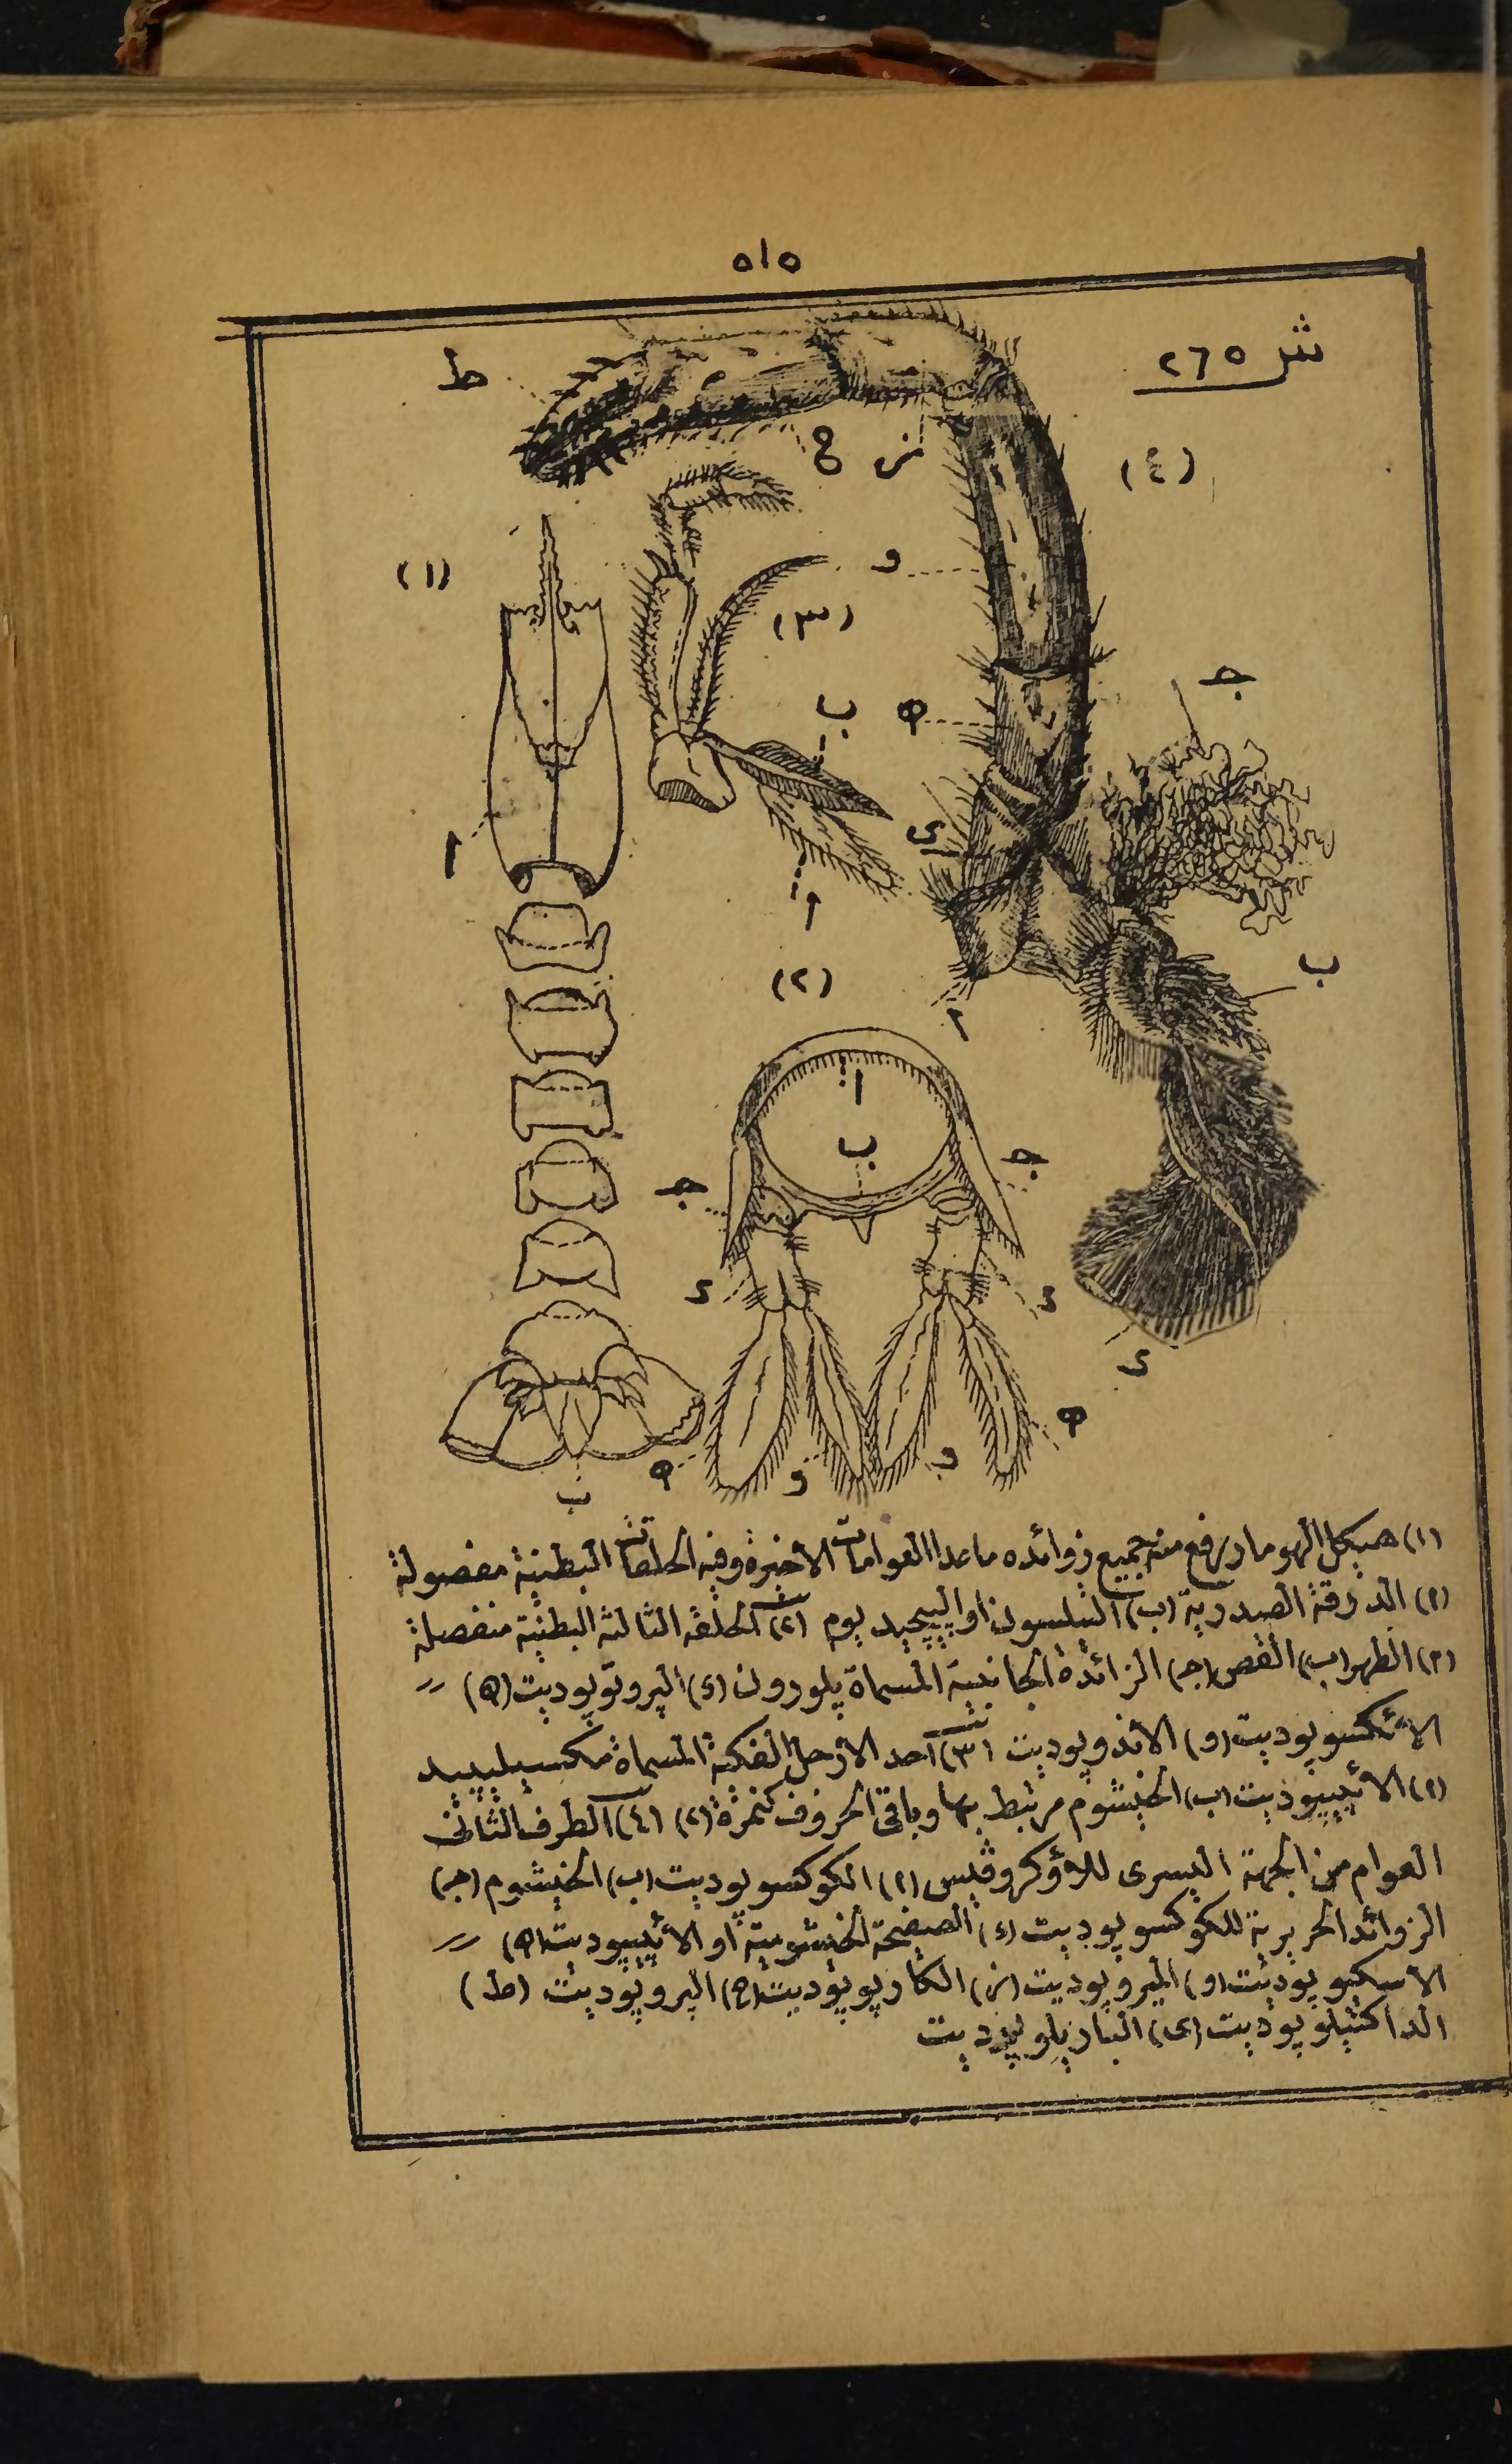 ٥١٥
شر ٢٦٥
ط
ز ح
(٤)
(١)
و
(٣)
جـ
ب
ه
ى
ا
ا
ب
(٢)
ا
ا
ب
جـ
جـ
د
د
د
ه
ه
و
و
ب
(١) هيكل الهومار رفع منه جميع زوائده ماعدا العوامات الأخيرة وفيه الحلقات البطنية مفصولة
(ا) الدرقة الصدرية (ب) التلسون او الپيجيديوم (٢) الحلقة الثالثة البطنية منفصلة
(ا) الظهر (ب) القص (جـ) الزائدة الجانبية المسماة پلورون (د) البروتوپوديت (ه)
الائكسوپوديت (و) الاندوپوديت (٣) أحد الأرجل الفكية المسماة مكسيلپيد
(ا) الائپيپوديت (ب) الخيشوم مرتبط بها وباقى الحروف كنمرة (٢) (٤) الطرف الثانى
العوام من الجهة اليسرى للأوكروڤيس (ا) الكوكسوپوديت (ب) الخيشوم (جـ)
الزوائد الحريرية للكوكسوپوديت (د) الصفيحة الخيشومية او الائپيپوديت (ه)
الاسكيوپوديت (و) الميروپوديت (ز) الكارپوپوديت (ح) الپروپوديت (ط)
الداكتيلوپوديت (ى) البازيلوپوديت